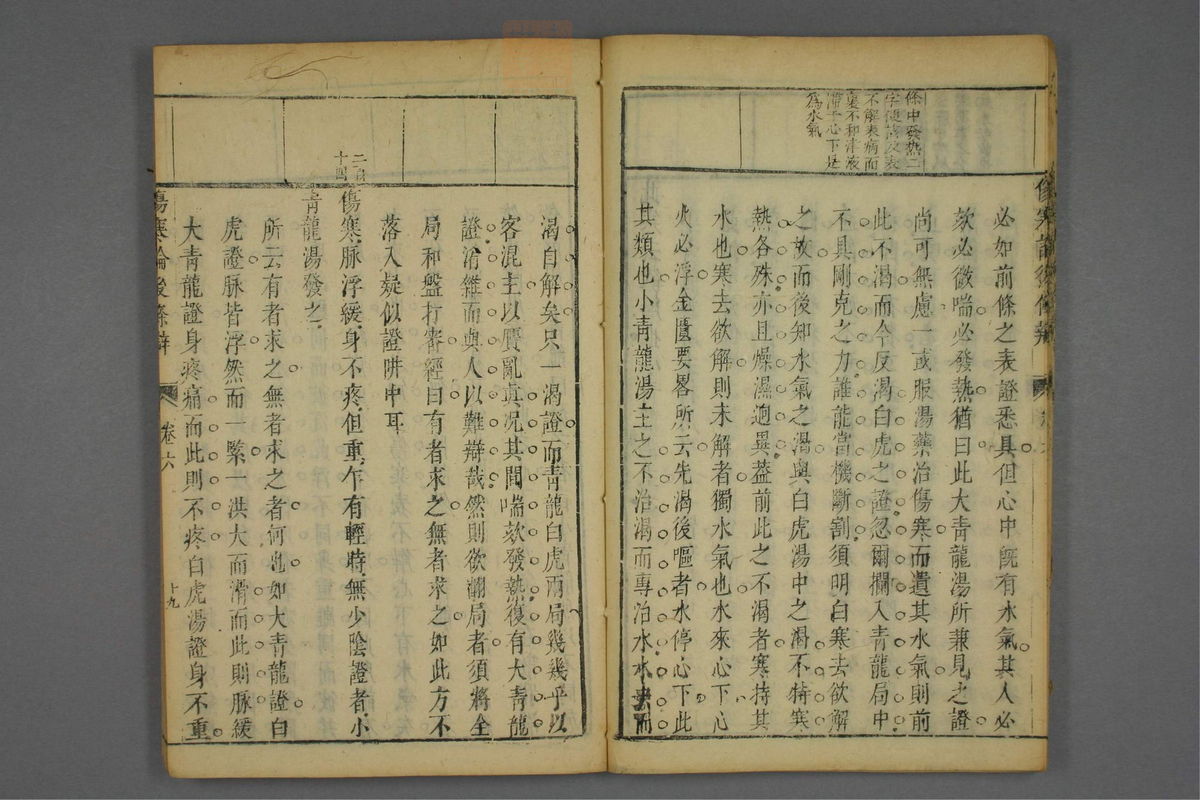 條中發熱二
字便該及表
不解表病而
裏不和津液
滯于心下是
為水氣
必如前條之表證悉具但心中旣有水氣其人必
欬必微喘必發熱猶曰此大青龍湯所兼見之證
尚可無慮一或服湯藥治傷寒而遺其水氣則前
此不渴而今反渴白虎之證忽爾攔入青龍局中
不具剛克之力誰能當機斷割須明白寒去欲解
之故而後知水氣之渴與白虎湯中之渴不特寒
熱各殊亦且燥濕逈異葢前此之不渴者寒持其
水也寒去欲解則未解者獨水氣也水來心下心
火必浮金匱要畧所云先渴後嘔者水停心下此
其類也小青龍湯主之不治渴而專治水水去而
渴自解矣只一渴證而青龍白虎兩局幾幾乎以
客混主以贋亂真况其間喘欬發熱復有大青龍
證淆雜而與人以難辯哉然則欲翻局者須將全
局和盤打審經曰有者求之無者求之如此方不
落入疑似證阱中耳
十四
傷寒脉浮緩身不疼但重乍有輕時無少陰證者小
青龍湯發之
所云有者求之無者求之者何也如大青龍證白
虎證脉皆浮然而一緊一洪大而滑而此則脉緩
大青龍證身疼痛而此則不疼白虎湯證身不重
傷寒論後條辯
卷六
十九